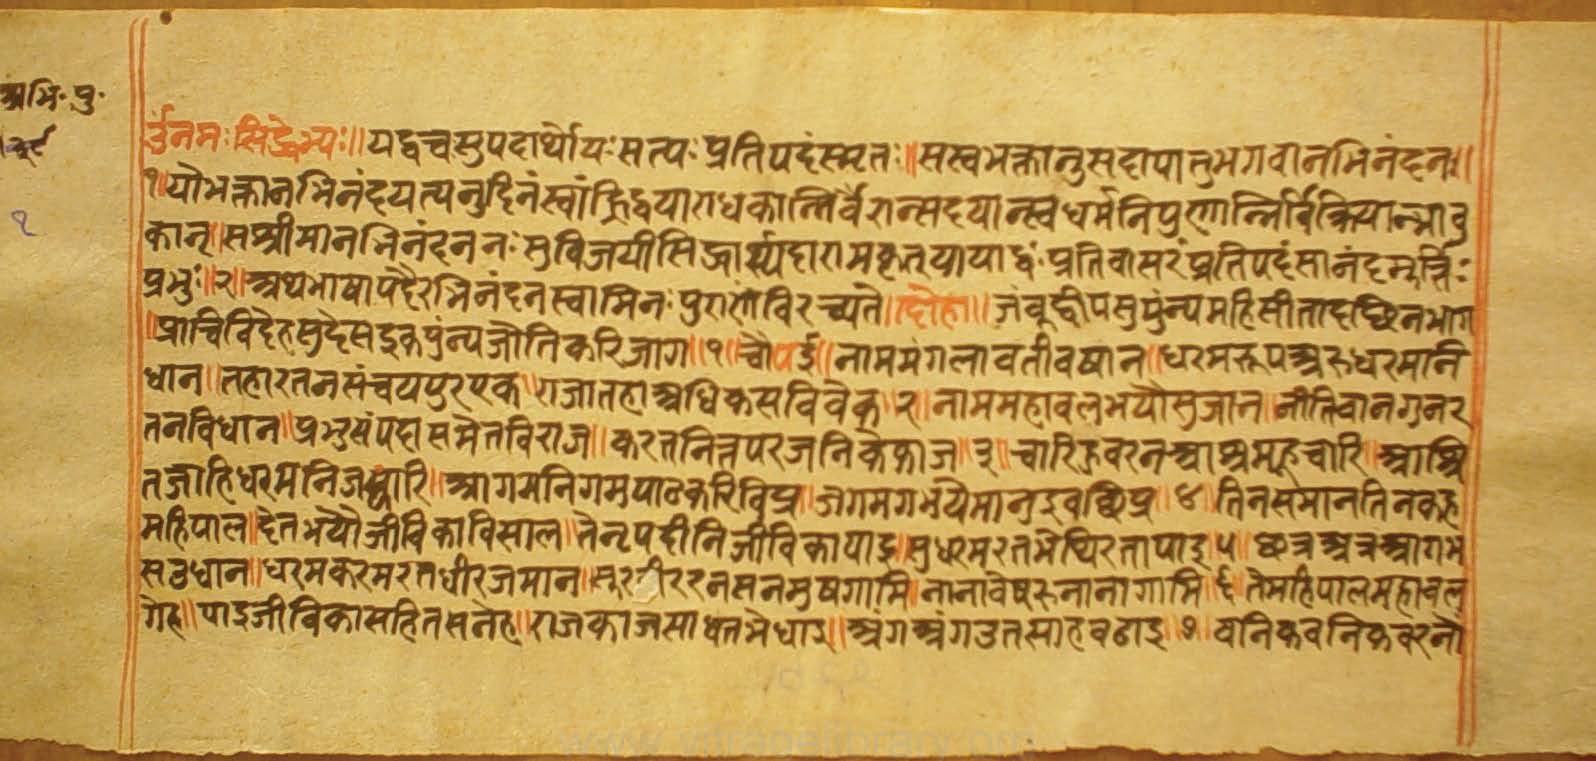 अभि. पु.
१
र्उनमः सिद्धेभ्यः॥ यद्वच्चसुपदार्थोयः सत्यः प्रतिपदंस्मृतः॥ सस्वभक्तानुसदापातुभगवानभिनंदनः॥
१॥ योभक्तानभिनंदयत्यनुदिनंस्वांह्रिद्वयाराधकान्निर्वैरान्सदयान्स्वधर्मनिपुणान्निर्विक्रियान्भावु
कान्॥ सश्रीमानभिनंदननः सुविजयीसिद्धार्स्यदारामकृत् प्रतिवासरंप्रतिपदंसानंदमूर्त्तिः
प्रभुः॥ २॥ अथभाषापदैरभिनंदनस्वामिनः पुराणंविरच्यते॥ दोहा॥ जंबूद्वीपसुपुंन्यमहिसीतादछिनभाग
॥ प्राचिविदेहसुदेसइकपुंन्यजोतिकरिजाग॥ १॥ चौपई॥ नाममंगलावतीवषान॥ धरमरूपअरुधरमनि
धान॥ तहारतनसंचयपुरएक॥ राजातहाअधिकसविवेक॥ २॥ नाममहावलभयौसुजान॥ नीतिवानगुनर
तनविधान॥ प्रभुसंपदासमेतविराज॥ करतनित्तपरजनिकेकाज॥ ३॥ चारिहुवरनआश्रमहूचारि॥ आश्रि
तजातिधरमनिज॥ आगमनिगमपाठकरिविप्र॥ जगमगभयेमानइवछिप्र॥ ४॥ तिनसमानतिनकह
महिपाल॥ देतभयौजीविकाविसाल॥ तेनृपदीनिजीविकापाइ॥ सुधरमरतभेथिरतापाइ॥ ५॥ छत्रअत्रआगम
सउधान॥ धरमकरमरतधीरजमान॥ सनमुषगामि॥ नानावेषरुनानागामि॥ ६॥ तेमहिपालमहावल
गेह॥ पाइजीविकासहितसनेह॥ राजकाजसाधतभेधाइ॥ अंगअंगउतसाहवढाइ॥ ७॥ वनिकवनिकवरनौ
www.vitragelibrary.com